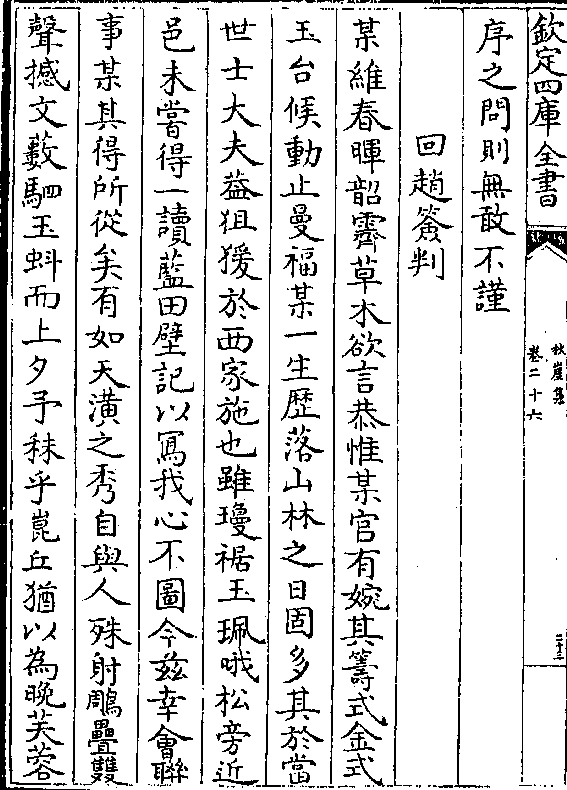 欽定四庫全書
秋崖集
卷二十六
二十三
序之問則無敢不謹
回趙簽判
某維春暉韶霽草木欲言恭惟某官有婉其籌式金式
玉台候動止曼福某一生歷落山林之日固多其於當
世士大夫葢狙猨於西家施也雖瓊裾玉珮哦松旁近
邑未嘗得一讀藍田壁記以寫我心不圖今兹幸會聯
事某其得所從矣有如天潢之秀自與人殊射鵰疊雙
聲撼文藪駟玉虯而上夕予秣乎崑丘猶以為晚芙蓉